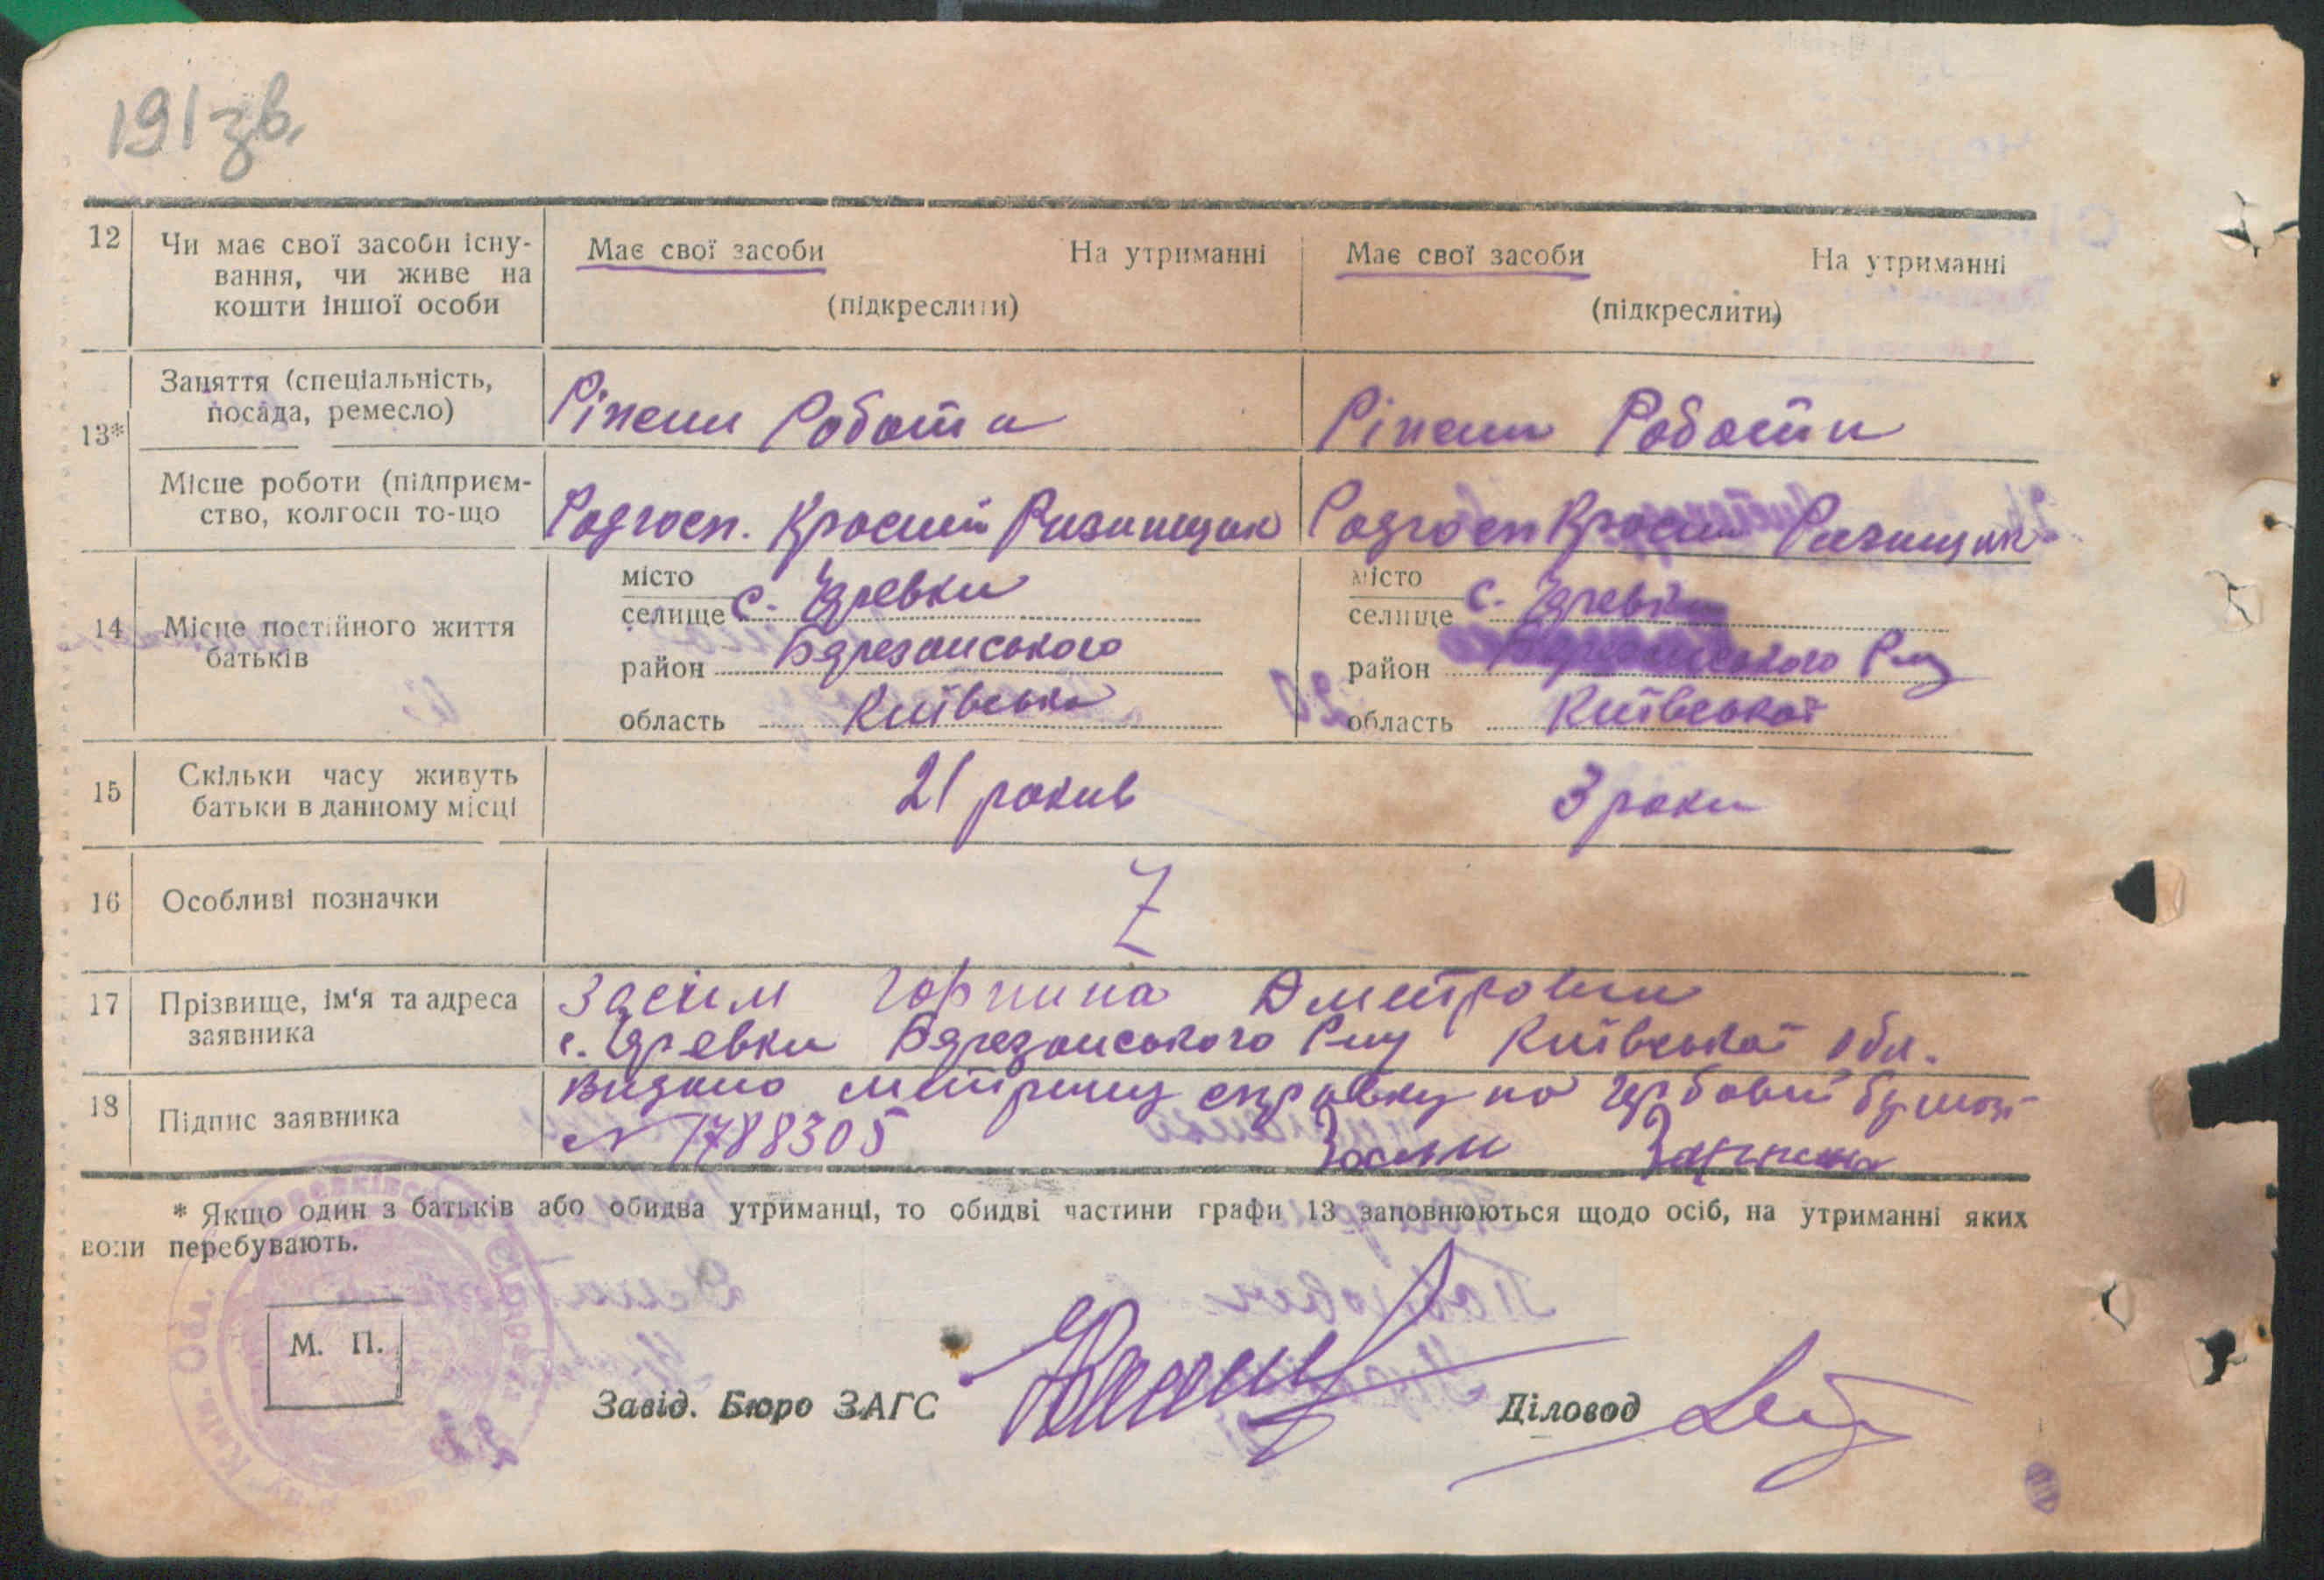 191 зв.
12 Чи має свої засоби існу-
вання, чи живе на
кошти іншої особи
Має свої засоби На утриманні
(підкреслити)
Має свої засоби На утриманні
(підкреслити)
13* Заняття (спеціальність,
посада, ремесло)
Ріжени Работи
Ріжени Работи
Місце роботи (підприєм-
ство, колгосп то-що
Радгосп.
Радгосп
14 Місце постійного життя
батьків
місто
селище с.
район Бэрезанського
область Київська
місто
селище с.
район Рну
область Київської
15 Скільки часу живуть
батьки в данному місці
21 років
3 роки
16 Особливі позначки
Z
17 Прізвище, ім'я та адреса
заявника
Горпина Дмитровна
с. Бэрезанського Рну Київської обл.
18 Підпис заявника
Видано метричну справку на гербовий бумазі
N 1788305
* Якщо один з батьків або обидва утриманці, то обидві частини графи 13 заповнюються щодо осіб, на утриманні яких
вони перебувають.
М. П.
Завід. Бюро ЗАГС
Діловод